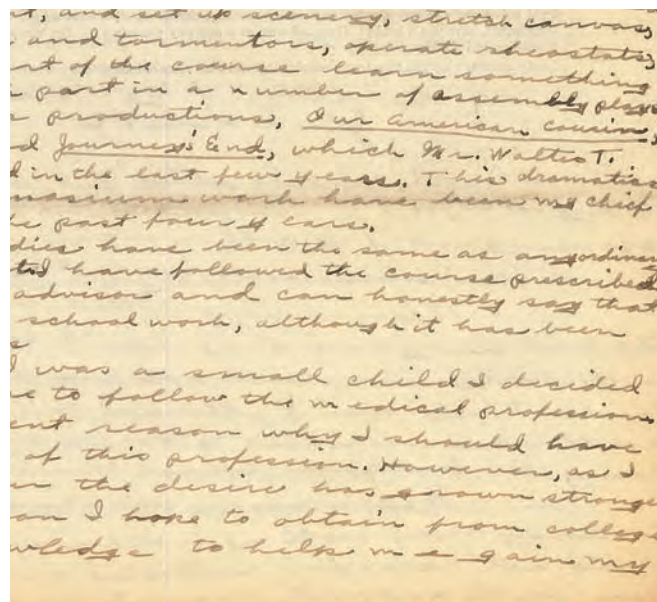 t, and set up scenery, stretch canvas,
and tormentors, operate rheostats,
rt of the course learn something
part in a number of assembly plays
s productions, Our American Cousin,
d Journey's End, which Mr. Walter T.
d in the last few years. This dramatics
nasium work have been my chief
e past four years.
dies have been the same as any ordinary
I have followed the course prescribed
advisor and can honestly say that
school work, although it has been
s
I was a small child I decided
e to follow the medical profession.
ent reason why I should have
of this profession. However, as I
er the desire has grown stronger
on I hope to obtain from college
wledge to help me gain my